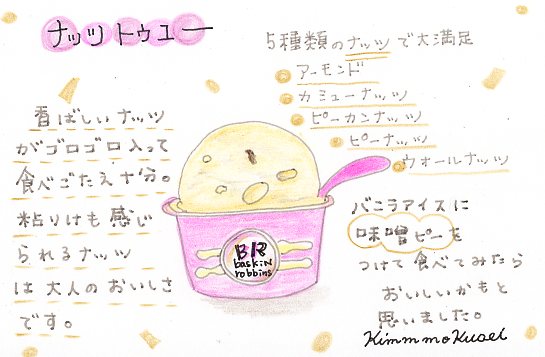 ナッツトゥユー
香ばしいナッツ
がゴロゴロ入って
食べごたえ十分。
粘りけも感じ
られるナッツ
は大人のおいしさ
です。
5種類のナッツで大満足
アーモンド
カミューナッツ
ピーカンナッツ
ピーナッツ
ウォールナッツ
BR
baskin
robbins
バニラアイスに
味噌ピーを
つけて食べてみたら
おいしいかもと
思いました。